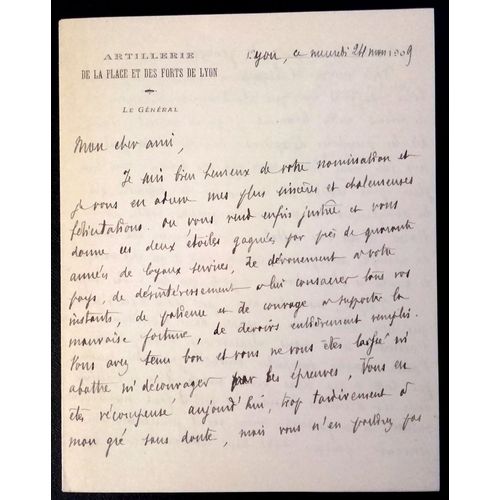 ARTILLERIE
DE LA PLACE ET DES FORTS DE LYON
LE GÉNÉRAL
Lyon, ce mercredi 24 mars 1909
Mon cher ami,
Je suis bien heureux de votre nomination et
je vous en adresse mes plus sincères et chaleureuses
félicitations. On vous rend enfin justice et vous
donne ces deux étoiles gagnées par près de quarante
années de loyaux services, de dévouement à votre
pays, de désintéressement à lui consacrer tous vos
instants, de patience et de courage à supporter la
mauvaise fortune, de devoirs entièrement remplis.
Vous avez tenu bon et vous ne vous êtes laissé ni
abattre ni décourager par les épreuves, Vous en
êtes récompensé aujourd'hui, trop tardivement à
mon gré sans doute, mais vous n'en perdrez pas